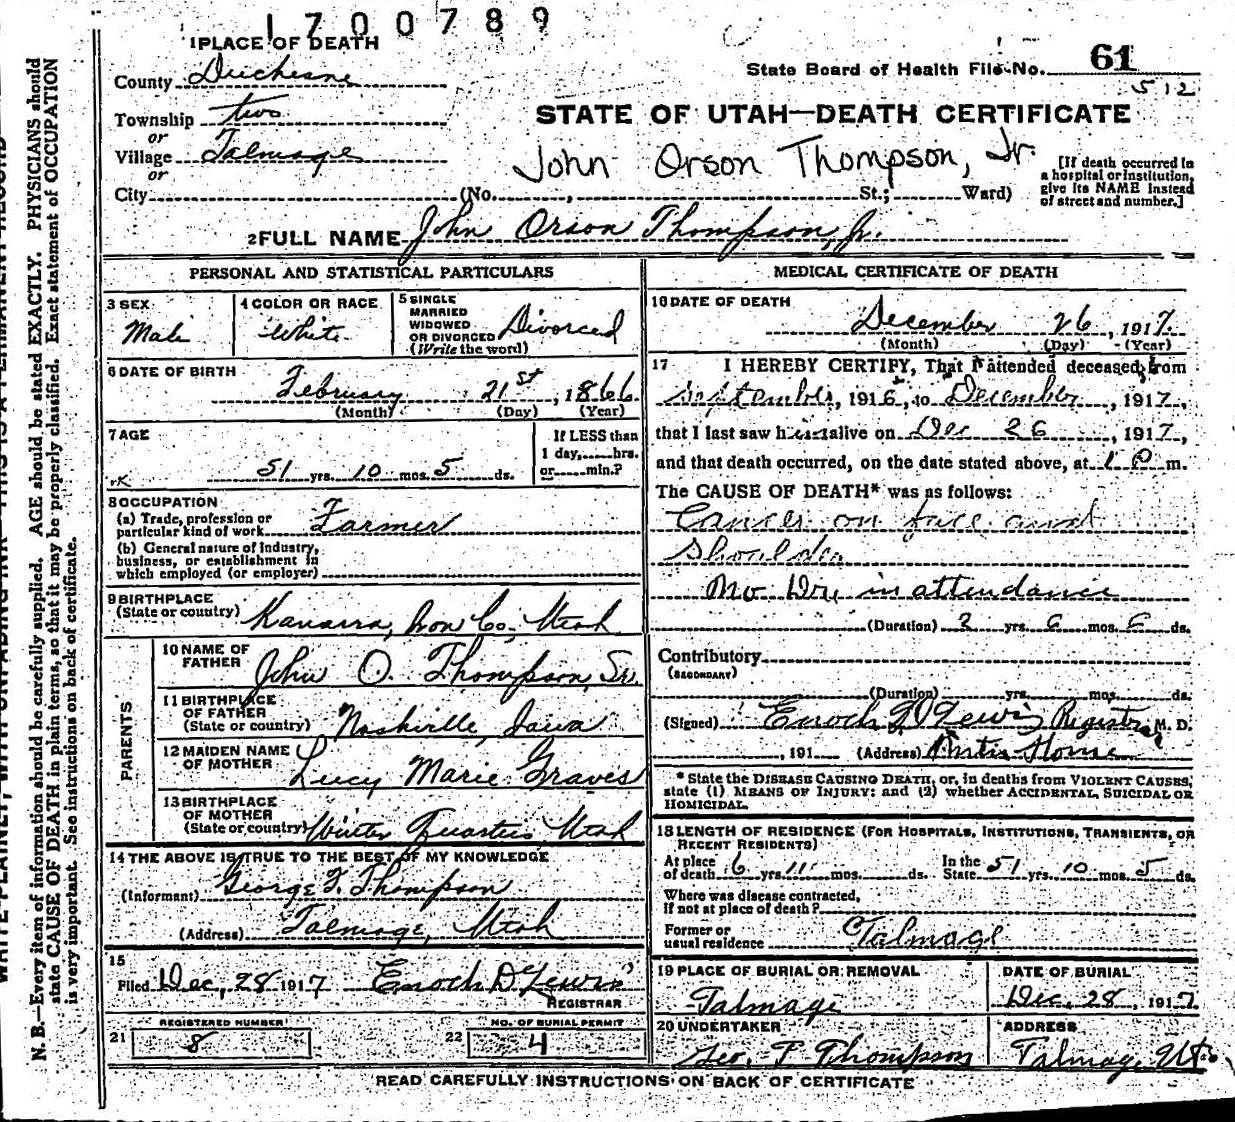 1700789
1 PLACE OF DEATH
County Duchesne
State Board of Health File No. 61
512
Township two
or
Village Talmage
or
City
STATE OF UTAH—DEATH CERTIFICATE
John Orson Thompson, Jr.
(No. , St.; Ward)
[If death occurred in
a hospital or institution,
give its NAME instead
of street and number.]
2 FULL NAME John Orson Thompson, Jr.
PERSONAL AND STATISTICAL PARTICULARS
3 SEX
Male
4 COLOR OR RACE
White
5 SINGLE
MARRIED
WIDOWED
OR DIVORCED
(Write the word)
Divorced
6 DATE OF BIRTH
February 21st, 1866
(Month) (Day) (Year)
7 AGE
51 yrs. 10 mos. 5 ds.
If LESS than
1 day, hrs.
or min.?
8 OCCUPATION
(a) Trade, profession or
particular kind of work Farmer
(b) General nature of industry,
business, or establishment in
which employed (or employer)
9 BIRTHPLACE
(State or country) Kanarra, Iron Co., Utah
PARENTS
10 NAME OF
FATHER John O. Thompson, Sr.
11 BIRTHPLACE
OF FATHER
(State or country) Nashville, Iowa
12 MAIDEN NAME
OF MOTHER Lucy Marie Graves
13 BIRTHPLACE
OF MOTHER
(State or country) Winter Quarters Utah
14 THE ABOVE IS TRUE TO THE BEST OF MY KNOWLEDGE
(Informant) George F. Thompson
(Address) Talmage, Utah
15
Filed Dec, 28 1917 Enoch D Lewis
REGISTRAR
21 REGISTERED NUMBER
8
22 NO. OF BURIAL PERMIT
4
MEDICAL CERTIFICATE OF DEATH
16 DATE OF DEATH
December 26, 1917.
(Month) (Day) (Year)
17 I HEREBY CERTIFY, That I attended deceased from
September, 1915, to December, 1917,
that I last saw him alive on Dec 26, 1917,
and that death occurred, on the date stated above, at 1 P m.
The CAUSE OF DEATH* was as follows:
Cancer on face and
Shoulder
No Drs in attendance
(Duration) 2 yrs. 6 mos. 6 ds.
Contributory
(SECONDARY)
(Duration) yrs. mos. ds.
(Signed) Enoch D Lewis Registrar M. D.
, 191 (Address) Home
* State the DISEASE CAUSING DEATH, or, in deaths from VIOLENT CAUSES,
state (1) MEANS OF INJURY; and (2) whether ACCIDENTAL, SUICIDAL OR
HOMICIDAL.
18 LENGTH OF RESIDENCE (FOR HOSPITALS, INSTITUTIONS, TRANSIENTS, OR
RECENT RESIDENTS)
At place
of death 6 yrs. 11 mos. ds.
In the
State 51 yrs. 10 mos. 5 ds.
Where was disease contracted,
if not at place of death?
Former or
usual residence Talmage
19 PLACE OF BURIAL OR REMOVAL
Talmage
DATE OF BURIAL
Dec. 28, 1917
20 UNDERTAKER
Geo. F Thompson
ADDRESS
Talmage, Ut
READ CAREFULLY INSTRUCTIONS ON BACK OF CERTIFICATE
N. B.—Every item of information should be carefully supplied. AGE should be stated EXACTLY. PHYSICIANS should
state CAUSE OF DEATH in plain terms, so that it may be properly classified. Exact statement of OCCUPATION
is very important. See instructions on back of certificate.